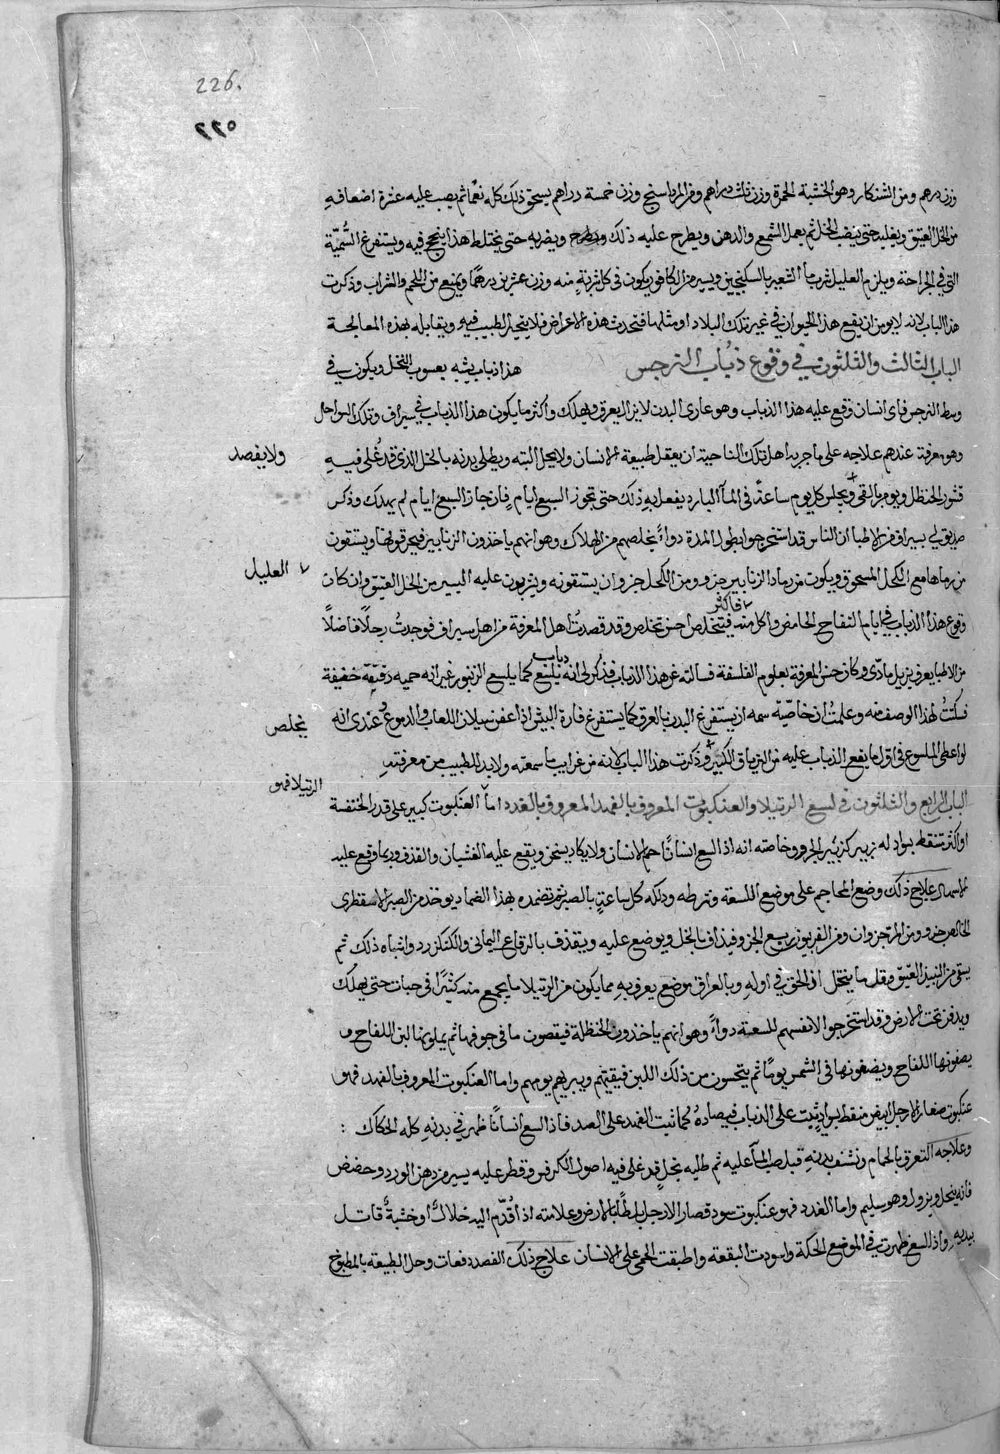 226.
٢٢٥
وزن درهم ومن الشنكار وهو الخشبة الحمرة وزن ثلث دراهم ومن المرداسنج وزن خمسة دراهم يسحق ذلك كله نعما ثم يصب عليه عشرة اضعافه
من الخل العتيق ويغليه حتى ينضب الخل ثم يعمل الشمع والدهن ويطرح عليه ذلك ويضربه حتى يختلط هذا ينجح فيه ويستفرغ السُّمّيّة
التي في الجراحة ويلزم العليل شرب ماء الشعير بالسكنجبين ويسير من الكافور يكون في كل شربةٍ منه وزن عشرين درهمًا ويمنع من اللحم والشراب وذكرت
هذا الباب لانه لا يومن ان يقع هذا الحيوان في غير تلك البلاد او مثلها فتحدث هذه الاعراض فلا يتحير الطبيب فيه ويقابله بهذه المعالجة
الباب الثالث والثلثون في وقوع ذُباب النرجس هذا ذباب يشبه يعسوب النحل ويكون في
وسط النرجس فاى انسان وقع عليه هذا الذباب وهو عارى البدن لا يزال يعرق ويهلك واكثر ما يكون هذا الذباب في سيراف وتلك السواحل
وهو معرفة عندهم علاجه على ما جربه اهل تلك الناحية ان يعقل طبيعة الانسان ولا يحل البته ويطلى بدنه بالخل الذى قد غُلى فيه
ولا يفصد
قشور الحنظل ويومر بالقى ويجلس كل يوم ساعةً في الماء البارد يفعل به ذلك حتى تجوز السبع ايام فان جاز السبع ايام لم يهلك وذكر
صديق لي بسيراف من الاطبا ان الناس قد استخرجوا بطول المدة دواءً يخلصهم من الهلاك وهو انهم ياخذون الزنابير فيحرقونها ويستفون
من رمادها مع الكحل المسحوق ويكون من رماد الزنابير جزو ومن الكحل جزوان يستفونه ويشربون عليه اليسير من الخل العتيق وان كان
العليل
وقوع هذا الذباب في ايام التفاح الحامض واكل منه فاكثر فيتخلص احسن تخلص وقد قصدتُ اهل المعرفة من اهل سيراف فوجدتُ رجلًا فاضلًا
من الاطبا يعرف بزيل مادّى وكان حسن المعرفة بعلوم الفلسفة فسالته عن هذا الذباب فذكر لى انه ذباب يلسع كما يلسع الزنبور غير انه حميه دقيقة خفيفة
فسكتُ لهذا الوصف منه وعلمتُ ان خاصّيّة سمه ان يستفرغ البدن بالعرق كما يستفرغ فارة البيش اذا عضت سيلان اللعاب والدموع وعندى انه
يخلص
لو اعطى الملسوع في اول ما يقع الذباب عليه من الترياق الكبير وذكرت هذا الباب لانه من غرايب ما سمعته ولا بد للطبيب من معرفته
الباب الرابع والثلثون في لسع الرتيلا والعنكبوت المعروف بالفهد المعروف بالغدد اما العنكبوت كبير على قدر الخنفسة
الرتيلا فهو
او اكثر منقط بسواد له زبير كزبير الجرو وخاصته انه اذا لسع انسانًا احم الانسان ولا يكاد يسخن ويقع عليه الغشيان والقذف وربما وقع عليه
الاسهال علاج ذلك وضع المحاجم على موضع اللسعة وشرطه ودلكه كل ساعةٍ بالصبر ثم تضمده بهذا الضماد يوخذ من الصبر الاسقطرى
الخالص جزو ومن المر جزوان ومن الفربيون ربع الجزو فيذاف بالخل ويوضع عليه ويتقذف بالرقاع اليمانى والكنكرزد واشباه ذلك ثم
يسقى من النبيذ العتيق وبالعراق موضع يعرف به مما يكون من الرتيلا ما يجمع منه كثيرًا في حبات حتى يهلك
ويدفن تحت الارض وقد استخرجوا لانفسهم للسعته دواءً وهو انهم ياخذون الحنظلة فيقصون ما في جوفها ثم يملونها لبن اللقاح و
يضعونها في الشمس يومًا ثم يتحسون من ذلك اللبن فيقيئهم ويبريهم يومهم واما العنكبوت المعروف بالفهد فهو
عنكبوت صغار الارجل ابيض منقط بسواد يثبت على الذباب فيصاده كما يثبت الفهد على الصيد فاذا لسع انسانًا ظهر في بدنه كله الحُكاك :
وعلاجه التعرق بالحمام وتنشف بدنه قبل صب الماء عليه ثم طليه بخلٍ قد غلى فيه اصول الكرفس وقطر عليه يسير من دهن الورد وحضض
فانه ينحل ويزول وهو سليم واما الغدد فهو عنكبوت سود قصار الارجل وعلامته اذا قُدّم اليه خلالٌ او خشبةٌ قاتل
بيديه واذا لسع ظهرت في الموضع الحكة واسودت البقعة واطبقت الحمى على الانسان علاج ذلك الفصد دفعات وحل الطبيعة بالمطبوخ